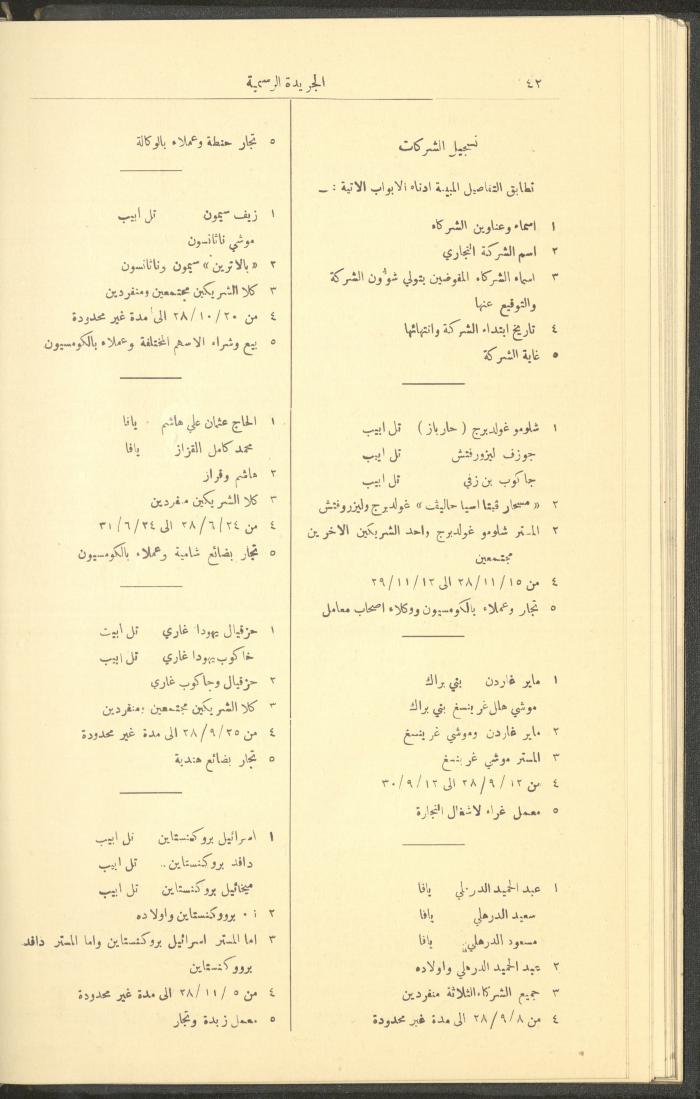 ٤٢
الجريدة الرسمية
تسجيل الشركات
تطابق التفاصيل المبينة ادناه الابواب الاتية : ــ
١ اسماء وعناوين الشركاء
٢ اسم الشركة التجاري
٣ اسماء الشركاء المفوضين بتولي شوؤن الشركة
والتوقيع عنها
٤ تاريخ ابتداء الشركة وانتهائها
٥ غاية الشركة
١ شلومو غولدبرج ( حارباز ) تل ابيب
جوزف ليزورفتش تل ابيب
جاكوب بن زفي تل ابيب
٢ « مسحار قبتا اسيا حاليف » غولدبرج وليزروفتش
٢ المستر شلومو غولدبرج واحد الشريكين الاخرين
مجتمعين
٤ من ٢٨/١١/١٥ الى ٢٩/١١/١٢
٥ تجار وعملاء بالكومسيون ووكلاء اصحاب معامل
١ ماير غاردن بني براك
موشي هالغرينسغ بني براك
٢ ماير غاردن وموشي غرينسغ
٣ المستر موشي غرينسغ
٤ من ٢٨/٩/١٢ الى ٣٠/٩/١٢
٥ معمل غراء لاشغال النجارة
١ عبد الحميد الدرهلي يافا
سعيد الدرهلي يافا
مسعود الدرهلي يافا
٢ عبد الحميد الدرهلي واولاده
٣ جميع الشركاء الثلاثة منفردين
٤ من ٢٨/٩/٨ الى مدة غير محدودة
٥ تجار حنطة وعملاء بالوكالة
١ زيف سيمون تل ابيب
موشي ناثانسون
٢ « بالاترين » سيمون وناثانسون
٣ كلا الشريكين مجتمعين ومنفردين
٤ من ٢٨/١٠/٢٠ الى مدة غير محدودة
٥ بيع وشراء الاسهم المختلفة وعملاء بالكومسيون
١ الحاج عثمان علي هاشم يافا
محمد كامل القزاز يافا
٢ هاشم وقزاز
٣ كلا الشريكين منفردين
٤ من ٢٨/٦/٢٤ الى ٣١/٦/٢٤
٥ تجار بضائع شامية وعملاء بالكومسيون
١ حزقيال يهودا غاري تل ابيب
خاكوب يهودا غاري تل ابيب
٢ حزقيال وجاكوب غاري
٣ كلا الشريكين مجتمعين ومنفردين
٤ من ٢٨/٩/٢٥ الى مدة غير محدودة
٥ تجار بضائع هندية
١ اسرائيل بروكنستاين تل ابيب
دافد بروكنستاين تل ابيب
ميخائيل بروكنستاين تل ابيب
٢ برووكنستاين واولاده
٣ اما المستر اسرائيل بروكنستاين واما المستر دافد
برووكنستاين
٤ من ٢٨/١١/٥ الى مدة غير محدودة
٥ معمل زبدة وتجار